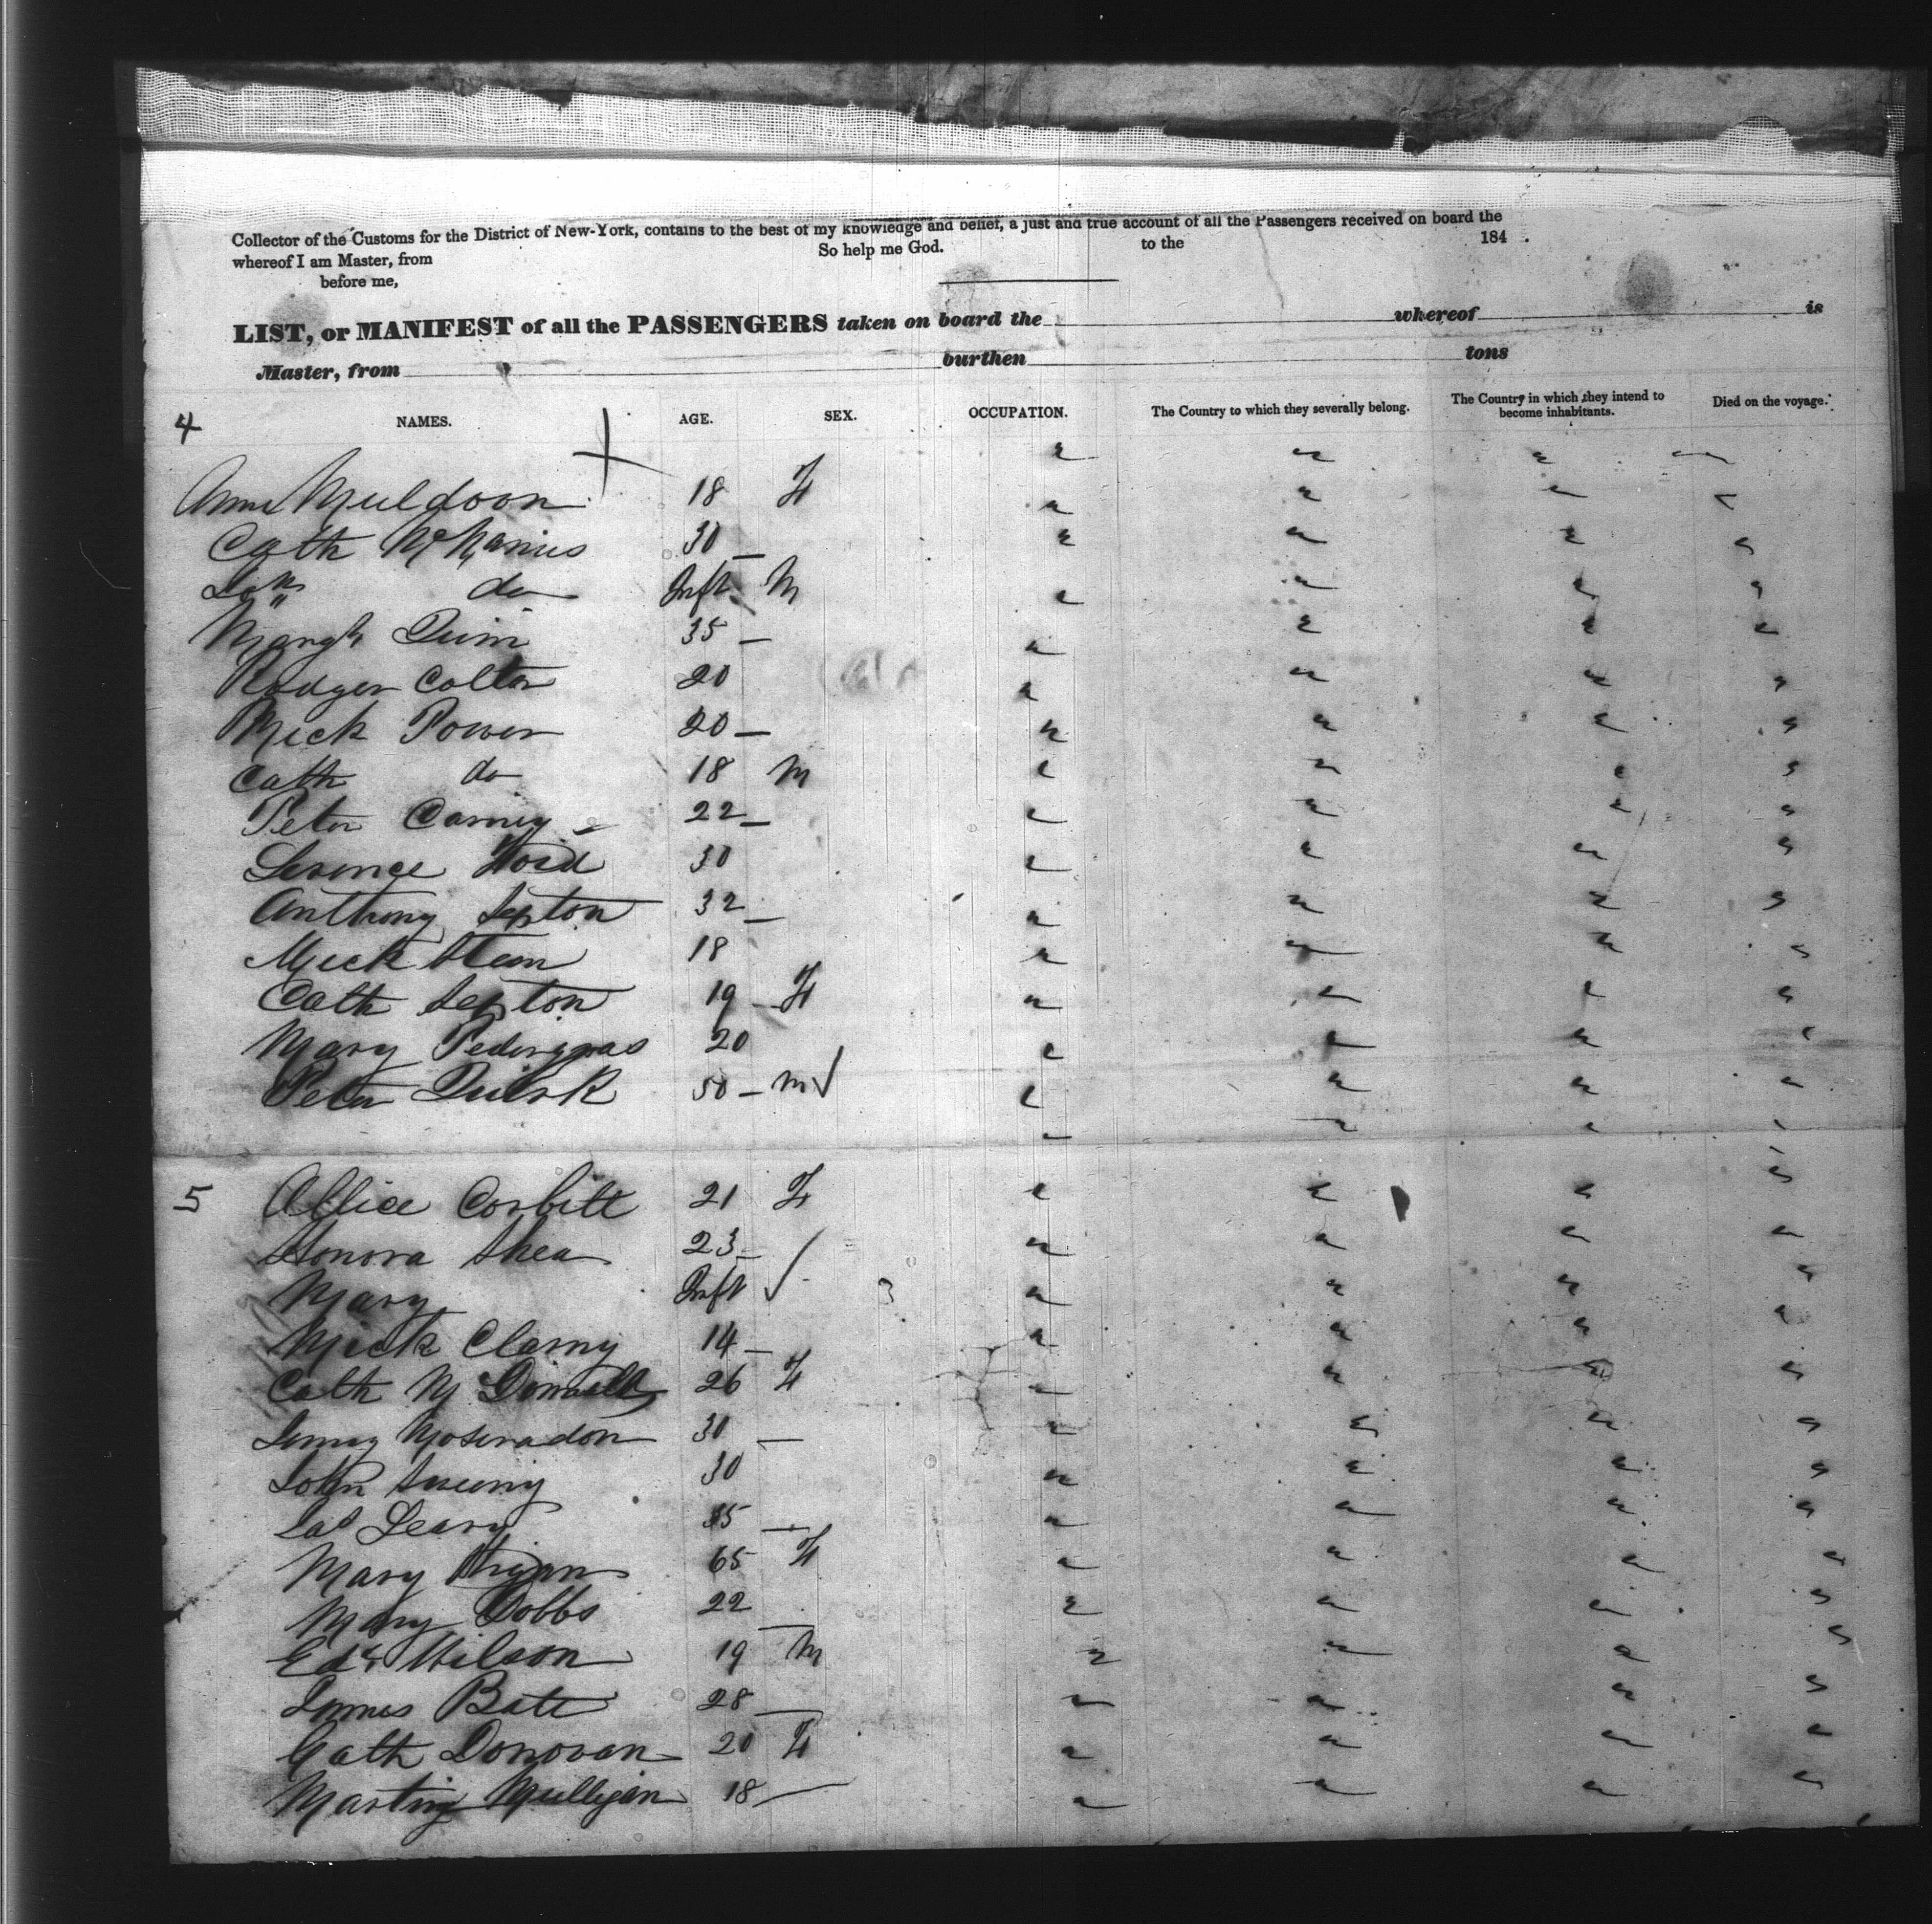 Collector of the Customs for the District of New-York, contains to the best of my knowledge and belief, a just and true account of all the Passengers received on board the
whereof I am Master, from to the 184 .
So help me God.
before me,
LIST, or MANIFEST of all the PASSENGERS taken on board the whereof is
Master, from burthen tons
4 NAMES. AGE. SEX. OCCUPATION. The Country to which they severally belong. The Country in which they intend to become inhabitants. Died on the voyage.
Ann Muldoon 18 F
Cath McManus 30 —
do Inft M
Margt Quin 35 —
Rodger Colton 20
Mick Power 20 —
Cath do 18 M
Peter Carney 22 —
30
Anthony Lepton 32 —
Mick 18
Cath Lepton 19 F
Mary 20
Peter Quirk 50 — M
5 Allice Corbitt 21 F
Honora Shea 23 —
Mary Inft
Mick Clarny 14 —
Cath McDonnell 26 F
30 —
John 30
Jas Leary 35 —
Mary 65 F
Mary Dobbs 22 —
Edw Wilson 19 M
James Bate 28 —
Cath Donovan 20 F
Martin Mulligan 18 —